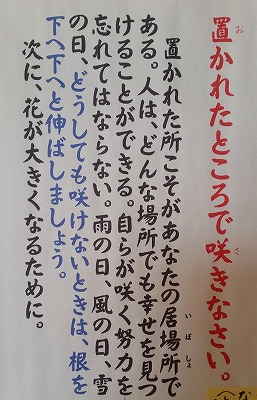 置かれたところで咲きなさい。
置かれた所こそがあなたの居場所で
ある。人は、どんな場所でも幸せを見つ
けることができる。自らが咲く努力を
忘れてはならない。雨の日、風の日、雪
の日、どうしても咲けないときは、根を
下へ下へと伸ばしましょう。
次に、花が大きくなるために。